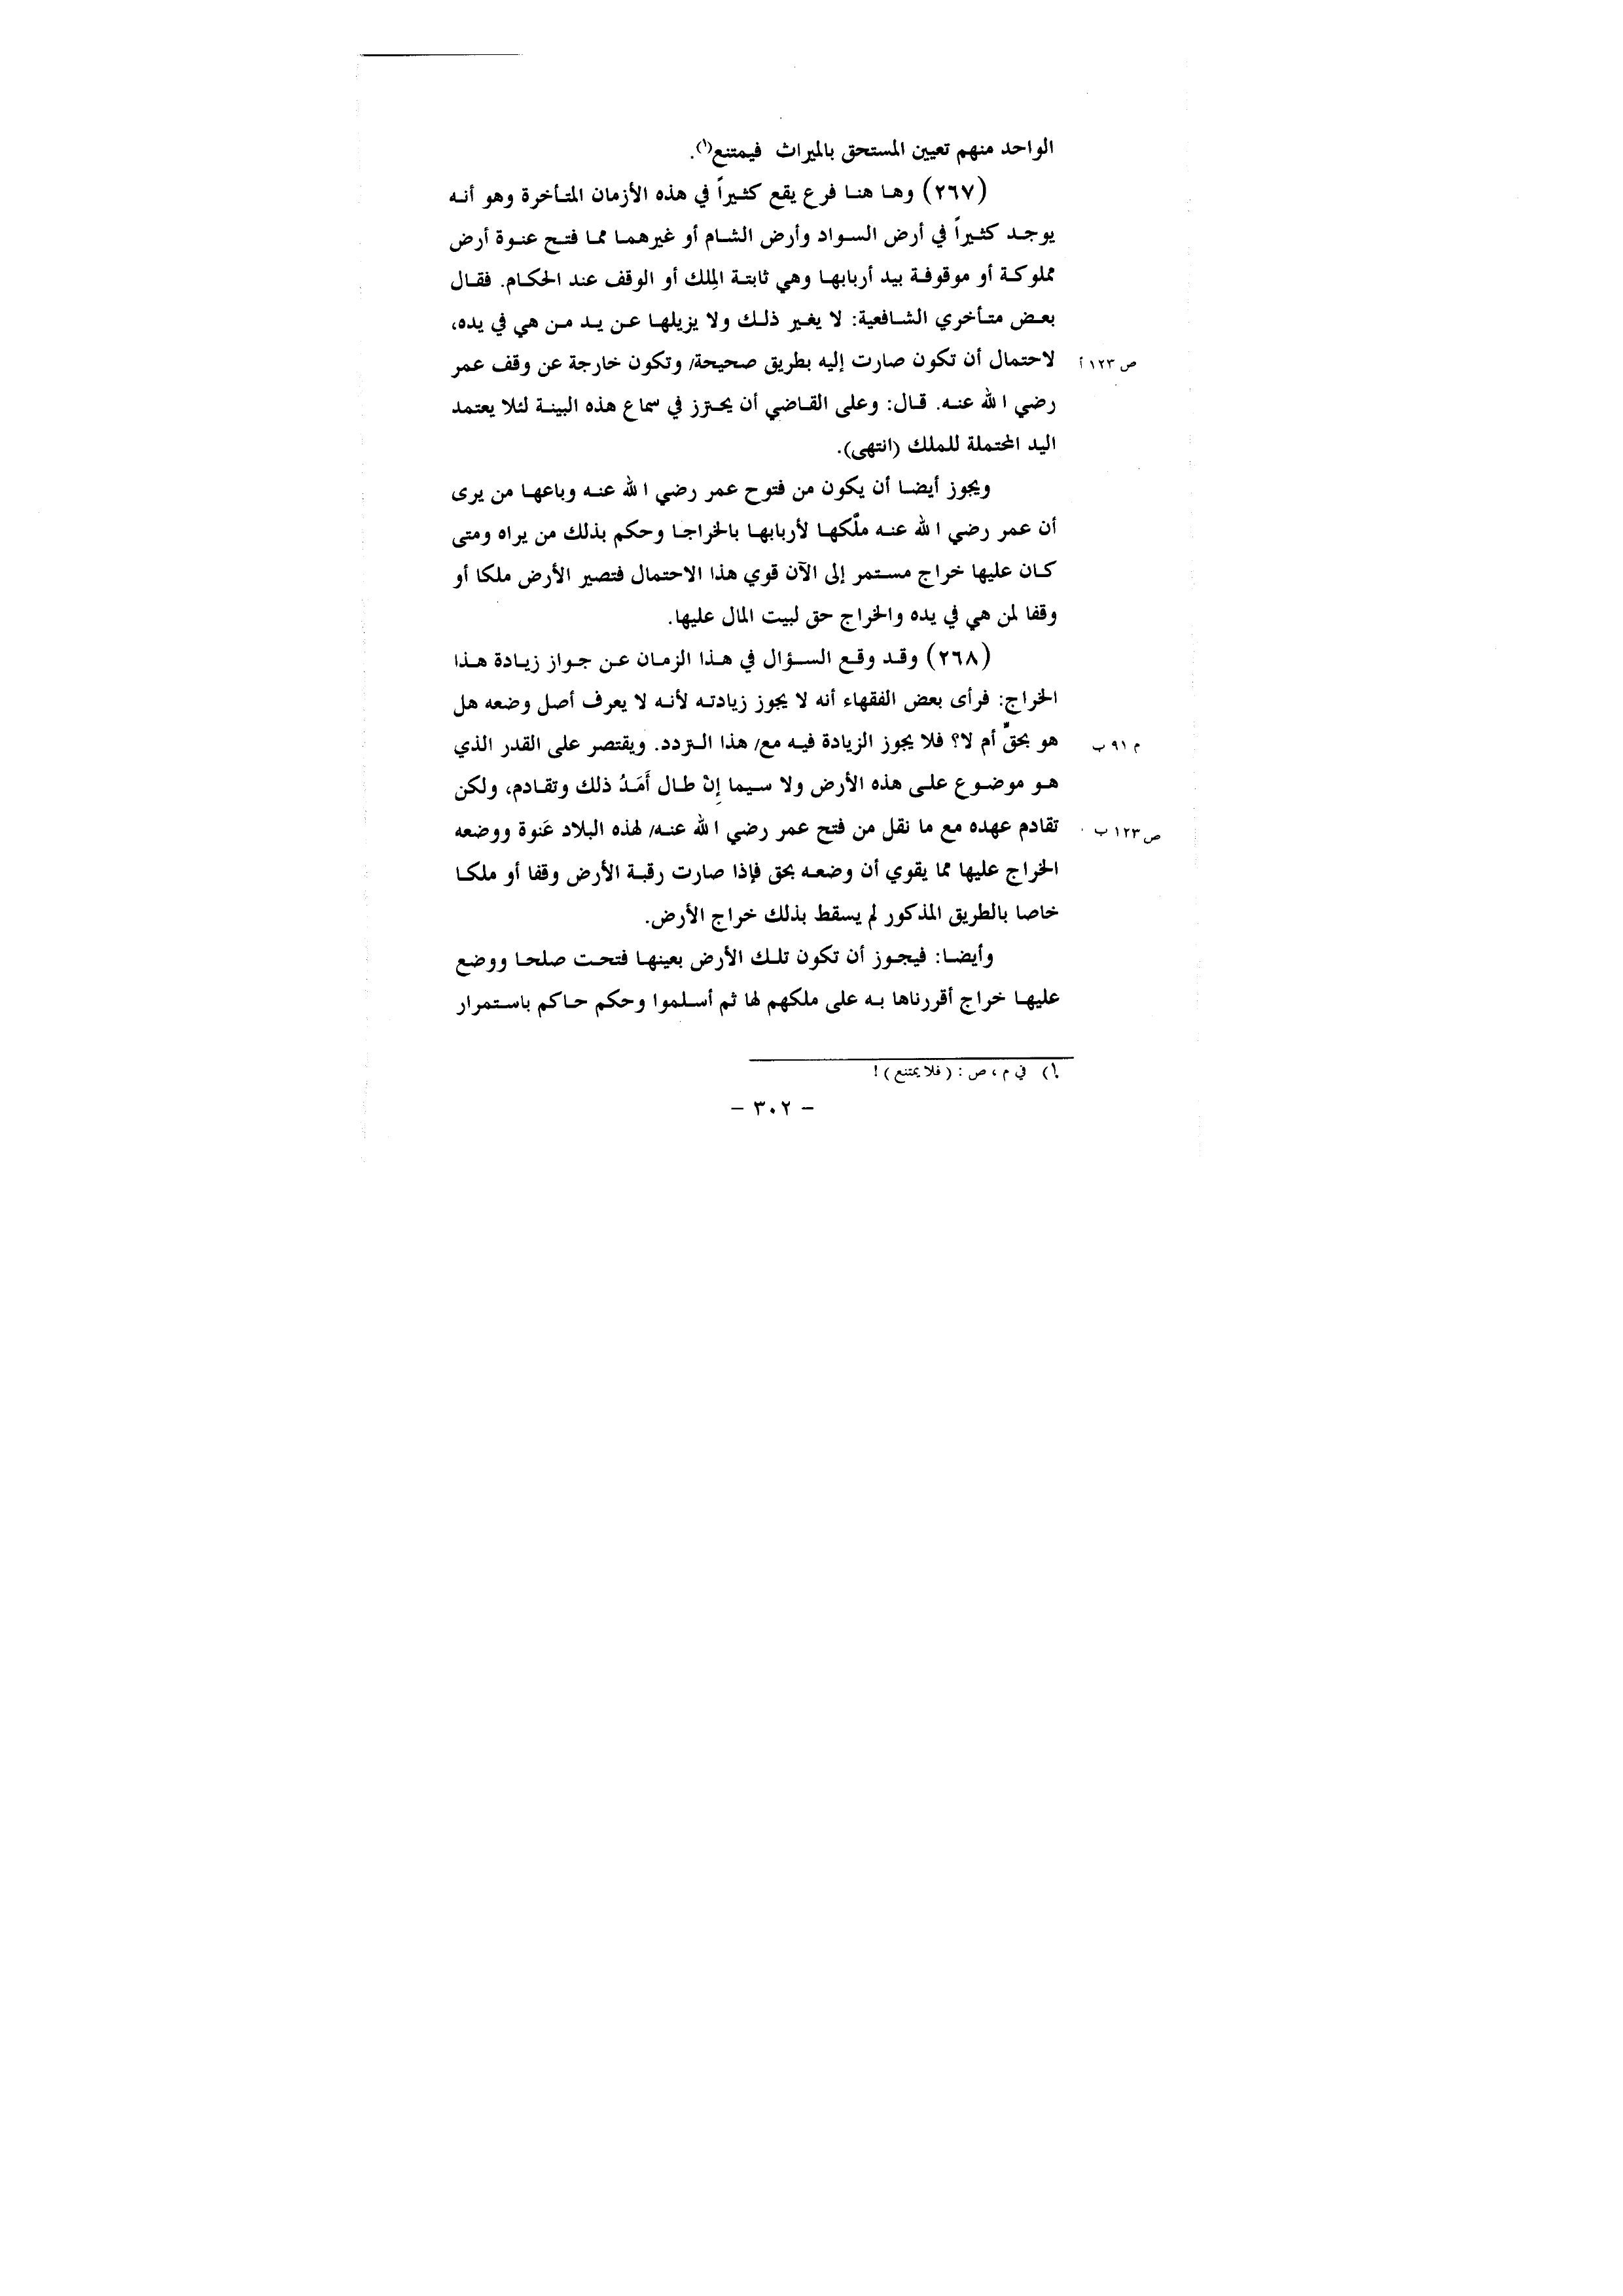 الواحد منهم تعيين المستحق بالميراث فيمتنع(١).
(٢٦٧) وها هنا فرع يقع كثيراً في هذه الأزمان المتأخرة وهو أنه
يوجد كثيراً في أرض السواد وأرض الشام أو غيرهما مما فتح عنوة أرض
مملوكة أو موقوفة بيد أربابها وهي ثابتة المِلك أو الوقف عند الحكام. فقال
بعض متأخري الشافعية: لا يغير ذلك ولا يزيلها عن يد من هي في يده،
لاحتمال أن تكون صارت إليه بطريق صحيحة/ وتكون خارجة عن وقف عمر
ص ١٢٣ أ
رضي الله عنه. قال: وعلى القاضي أن يحترز في سماع هذه البينة لئلا يعتمد
اليد المحتملة للملك (انتهى).
ويجوز أيضا أن يكون من فتوح عمر رضي الله عنه وباعها من يرى
أن عمر رضي الله عنه ملّكها لأربابها بالخراجا وحكم بذلك من يراه ومتى
كان عليها خراج مستمر إلى الآن قوي هذا الاحتمال فتصير الأرض ملكا أو
وقفا لمن هي في يده والخراج حق لبيت المال عليها.
(٢٦٨) وقد وقع السؤال في هذا الزمان عن جواز زيادة هذا
الخراج: فرأى بعض الفقهاء أنه لا يجوز زيادته لأنه لا يعرف أصل وضعه هل
هو بحقٍّ أم لا؟ فلا يجوز الزيادة فيه مع/ هذا التردد. ويقتصر على القدر الذي
م ٩١ ب
هو موضوع على هذه الأرض ولا سيما إِنْ طال أَمَدُ ذلك وتقادم، ولكن
تقادم عهده مع ما نقل من فتح عمر رضي الله عنه/ لهذه البلاد عَنوة ووضعه
ص ١٢٣ ب
الخراج عليها مما يقوي أن وضعه بحق فإذا صارت رقبة الأرض وقفا أو ملكا
خاصا بالطريق المذكور لم يسقط بذلك خراج الأرض.
وأيضا: فيجوز أن تكون تلك الأرض بعينها فتحت صلحا ووضع
عليها خراج أقررناها به على ملكهم لها ثم أسلموا وحكم حاكم باستمرار
١) في م ، ص : ( فلا يمتنع ) !
– ٣٠٢ –